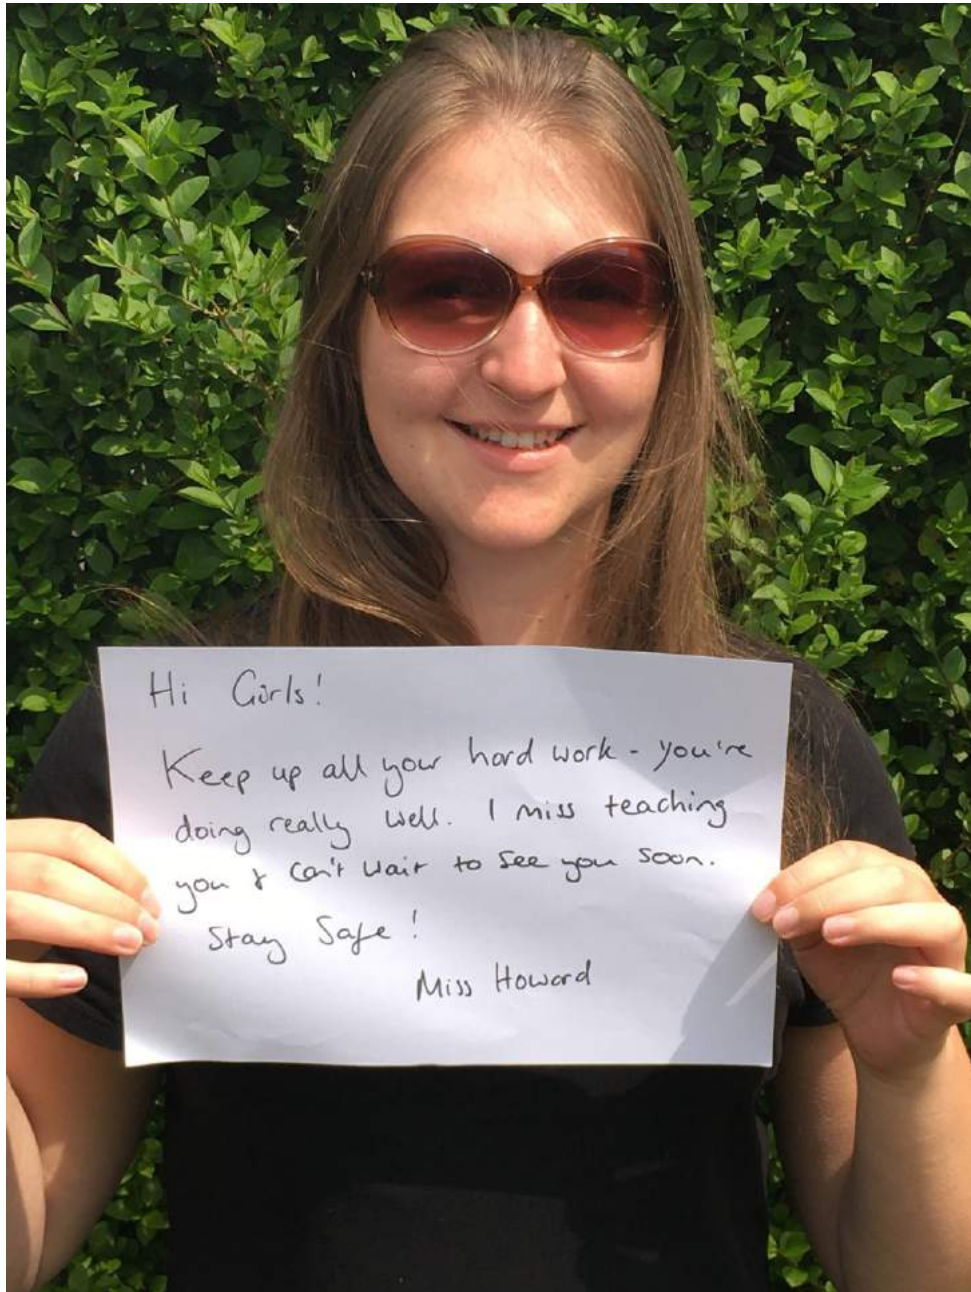 Hi Girls!
Keep up all your hard work - you're
doing really well. I miss teaching
you & can't wait to see you soon.
Stay Safe!
Miss Howard